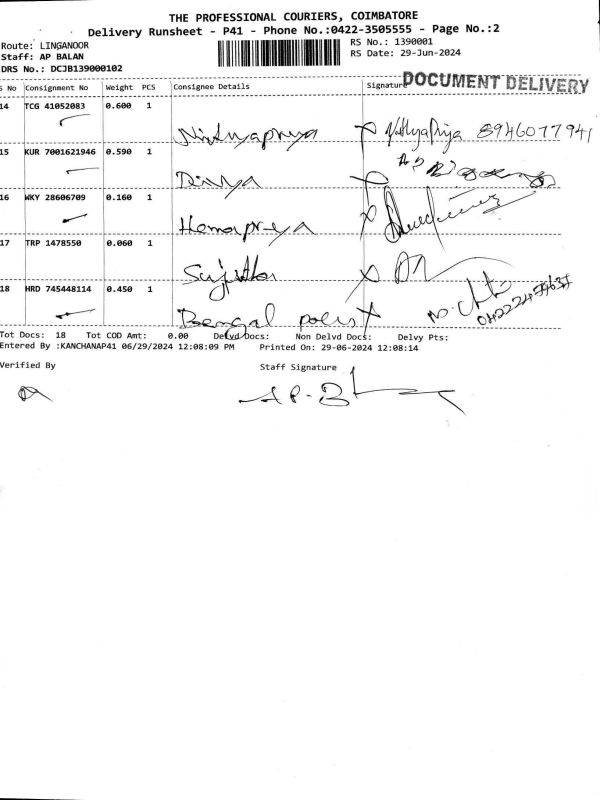 THE PROFESSIONAL COURIERS, COIMBATORE
Delivery Runsheet - P41 - Phone No.:0422-3505555 - Page No.:2
Route: LINGANOOR
RS No.: 1390001
Staff: AP BALAN
RS Date: 29-Jun-2024
DRS No.: DCJB139000102
DOCUMENT DELIVERY
S No Consignment No Weight PCS Consignee Details Signature
14 TCG 41052083 0.600 1
Nithyapriya 8946077941
15 KUR 7001621946 0.590 1
Divya
16 WKY 28606709 0.160 1
Hemapriya
17 TRP 1478550 0.060 1
Sujitha
18 HRD 745448114 0.450 1
Bengal polis
Tot Docs: 18 Tot COD Amt: 0.00 Delvd Docs: Non Delvd Docs: Delvy Pts:
Entered By :KANCHANAP41 06/29/2024 12:08:09 PM Printed On: 29-06-2024 12:08:14
Verified By Staff Signature